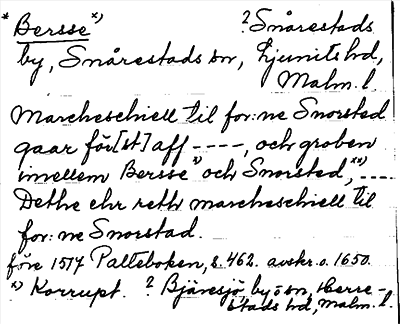 * Bersse *) ? Snårestads
by, Snårestads sn, Ljunits hd,
Malm. l.
Marcheschiell til for:ne Snorstad
gaar för[st] aff ----, och groben
imellem Bersse *) och Snorsted, **) ----
Dethe ehr reth marcheschiell til
for:ne Snorstad.
före 1517 Palteboken, s. 462. avskr. o. 1650.
*) Korrupt. ? Bjäresjö by o sn, Herre-
stads hd, Malm. l.